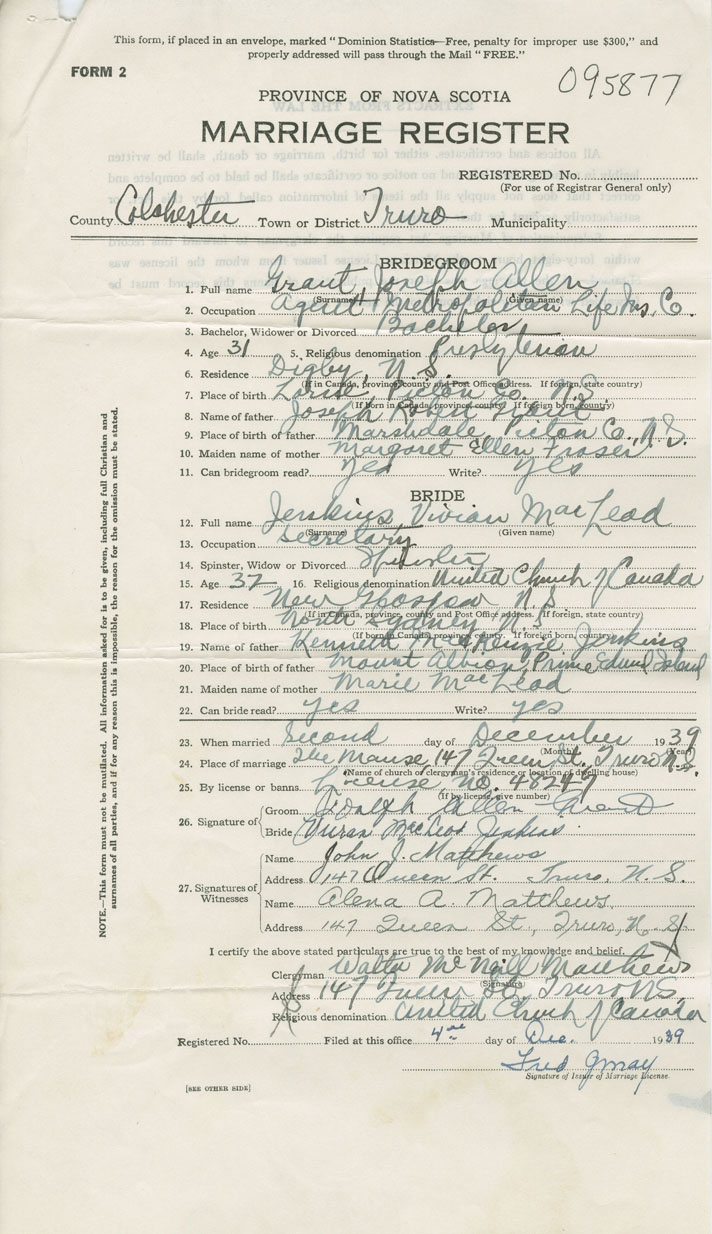 This form, if placed in an envelope, marked "Dominion Statistics—Free, penalty for improper use $300," and
properly addressed will pass through the Mail "FREE."
FORM 2
095877
PROVINCE OF NOVA SCOTIA
MARRIAGE REGISTER
REGISTERED No.
(For use of Registrar General only)
County Colchester Town or District Truro Municipality
BRIDEGROOM
1. Full name Grant Joseph Allen
(Surname) (Given name)
2. Occupation Agent Metropolitan Life Ins. Co.
3. Bachelor, Widower or Divorced Bachelor
4. Age 31 5. Religious denomination Presbyterian
6. Residence Digby, N.S.
(If in Canada, province, county and Post Office address. If foreign, state country)
7. Place of birth Pictou Co. N.S.
(If born in Canada, province, county. If foreign born, country)
8. Name of father Joseph Robert Grant
9. Place of birth of father Marshdale, Pictou Co., N.S.
10. Maiden name of mother Margaret Ellen Fraser
11. Can bridegroom read? Yes Write? Yes
BRIDE
12. Full name Jenkins, Vivian MacLeod
(Surname) (Given name)
13. Occupation Secretary
14. Spinster, Widow or Divorced Spinster
15. Age 37 16. Religious denomination United Church of Canada
17. Residence New Glasgow N.S.
(If in Canada, province, county and Post Office address. If foreign, state country)
18. Place of birth North Sydney N.S.
(If born in Canada, province, county. If foreign born, country)
19. Name of father Kenneth MacKenzie Jenkins
20. Place of birth of father Mount Albion, Prince Edward Island
21. Maiden name of mother Marie MacLeod
22. Can bride read? yes Write? yes
23. When married Second day of December 1939
(Month) (Year)
24. Place of marriage The Manse, 147 Queen St. Truro N.S.
(Name of church or clergyman's residence or location of dwelling house)
25. By license or banns License, No.
(If by license, give number)
26. Signature of Groom Allen Grant
Bride Vivian MacLeod Jenkins
27. Signatures of Witnesses
Name John J. Matthews
Address 147 Queen St. Truro, N.S.
Name Alena A. Matthews
Address 147 Queen St., Truro, N.S.
I certify the above stated particulars are true to the best of my knowledge and belief.
Clergyman Walter McNeill Matthews
(Signature)
Address 147 Queen St. Truro N.S.
Religious denomination United Church of Canada
Registered No. Filed at this office 4th day of Dec. 1939
Fred
Signature of Issuer of Marriage License.
[SEE OTHER SIDE]
NOTE.—This form must not be mutilated. All information asked for is to be given, including full Christian and
surnames of all parties, and if for any reason this is impossible, the reason for the omission must be stated.